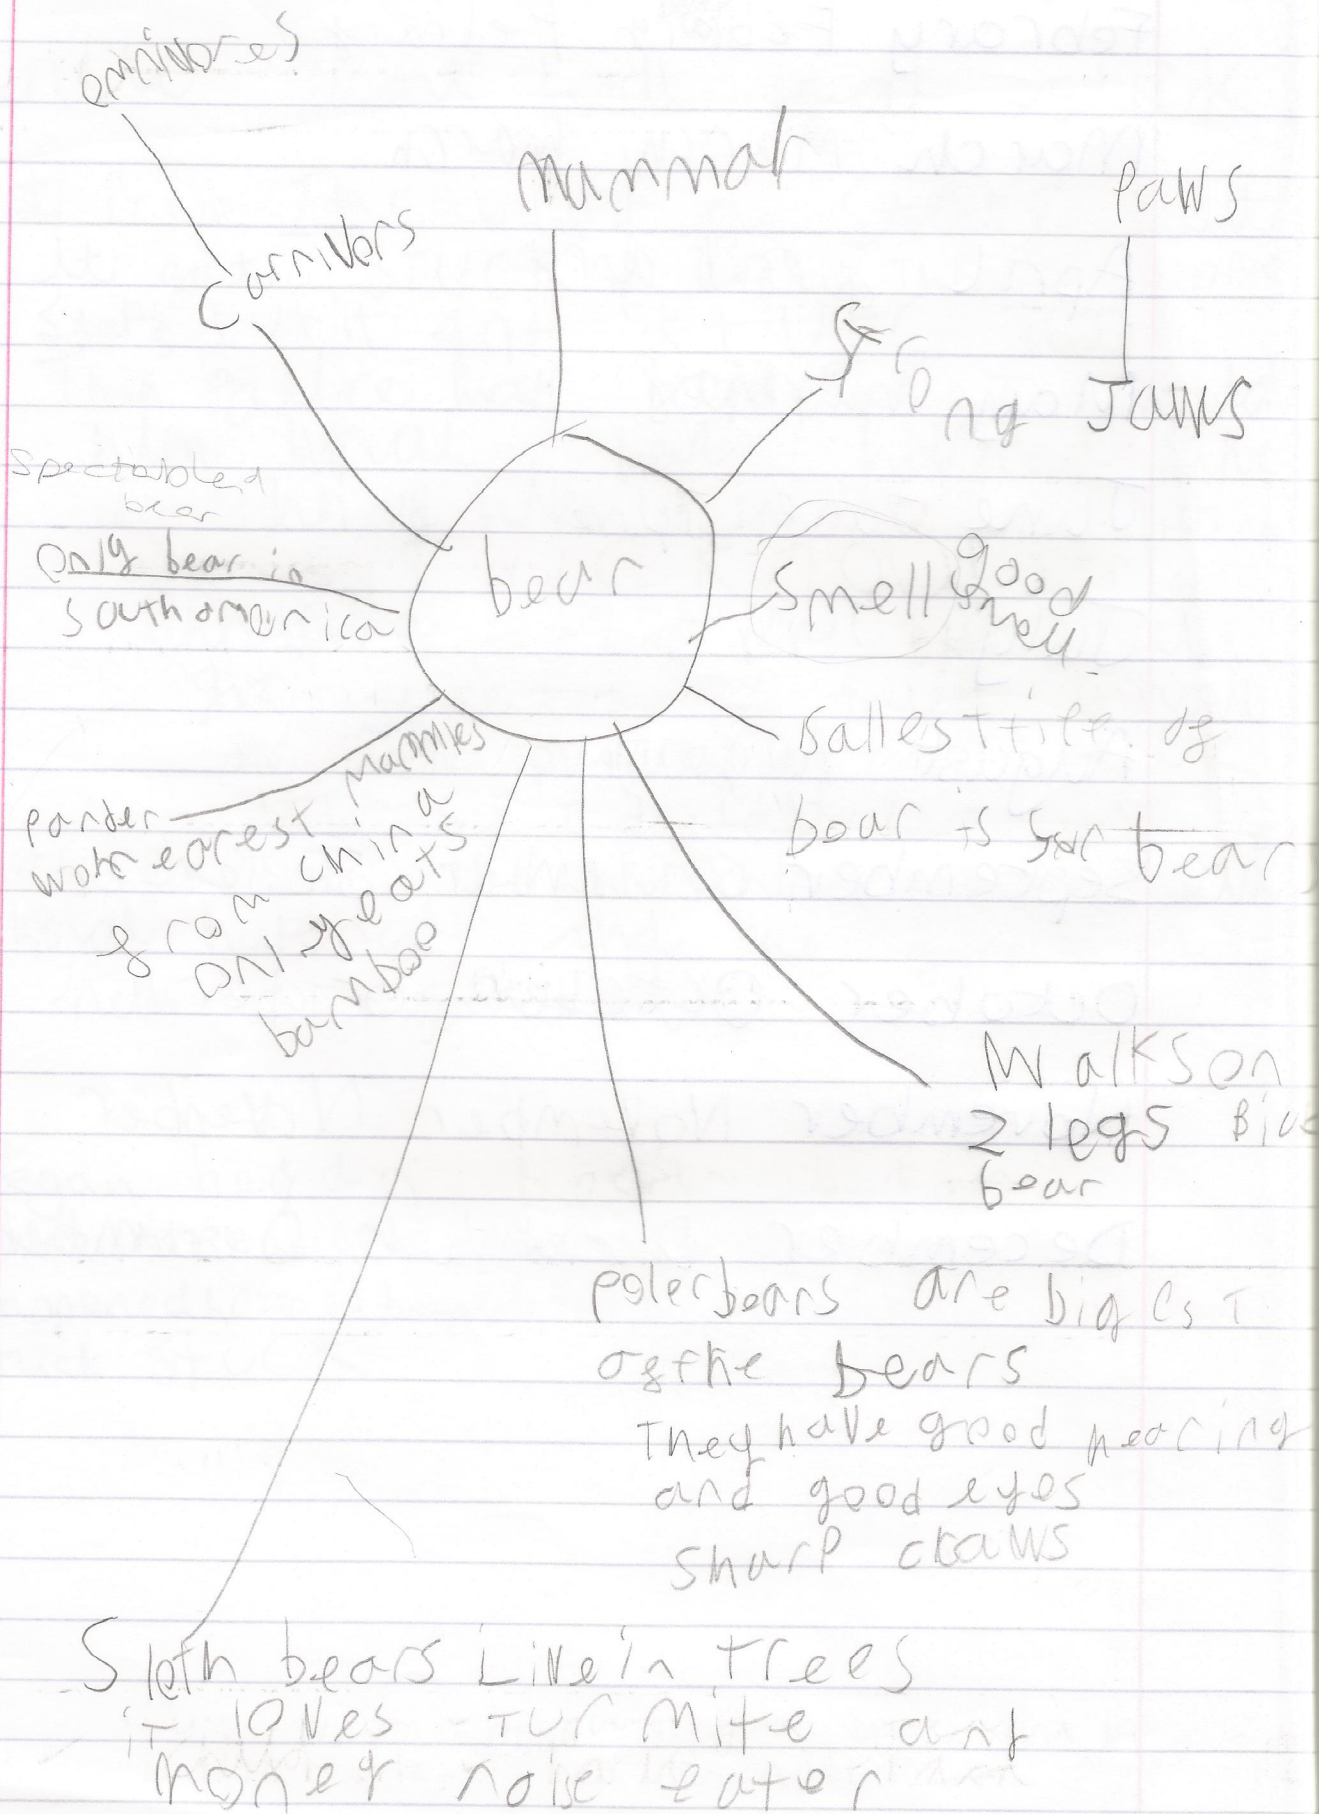 omnivores
Carnivers
mammal
Paws
Strong
Jaws
Spectabled
bear
only bear in
south america
bear
Smell good
smell
of
bear is sun bear
pander
rarest mammles
from china
only eats
bamboo
Walks on
2 legs
bear
polerbears are bigest
of the bears
They have good hearing
and good eyes
sharp claws
Sloth bears Live in trees
it loves turmite and
honey noise eater